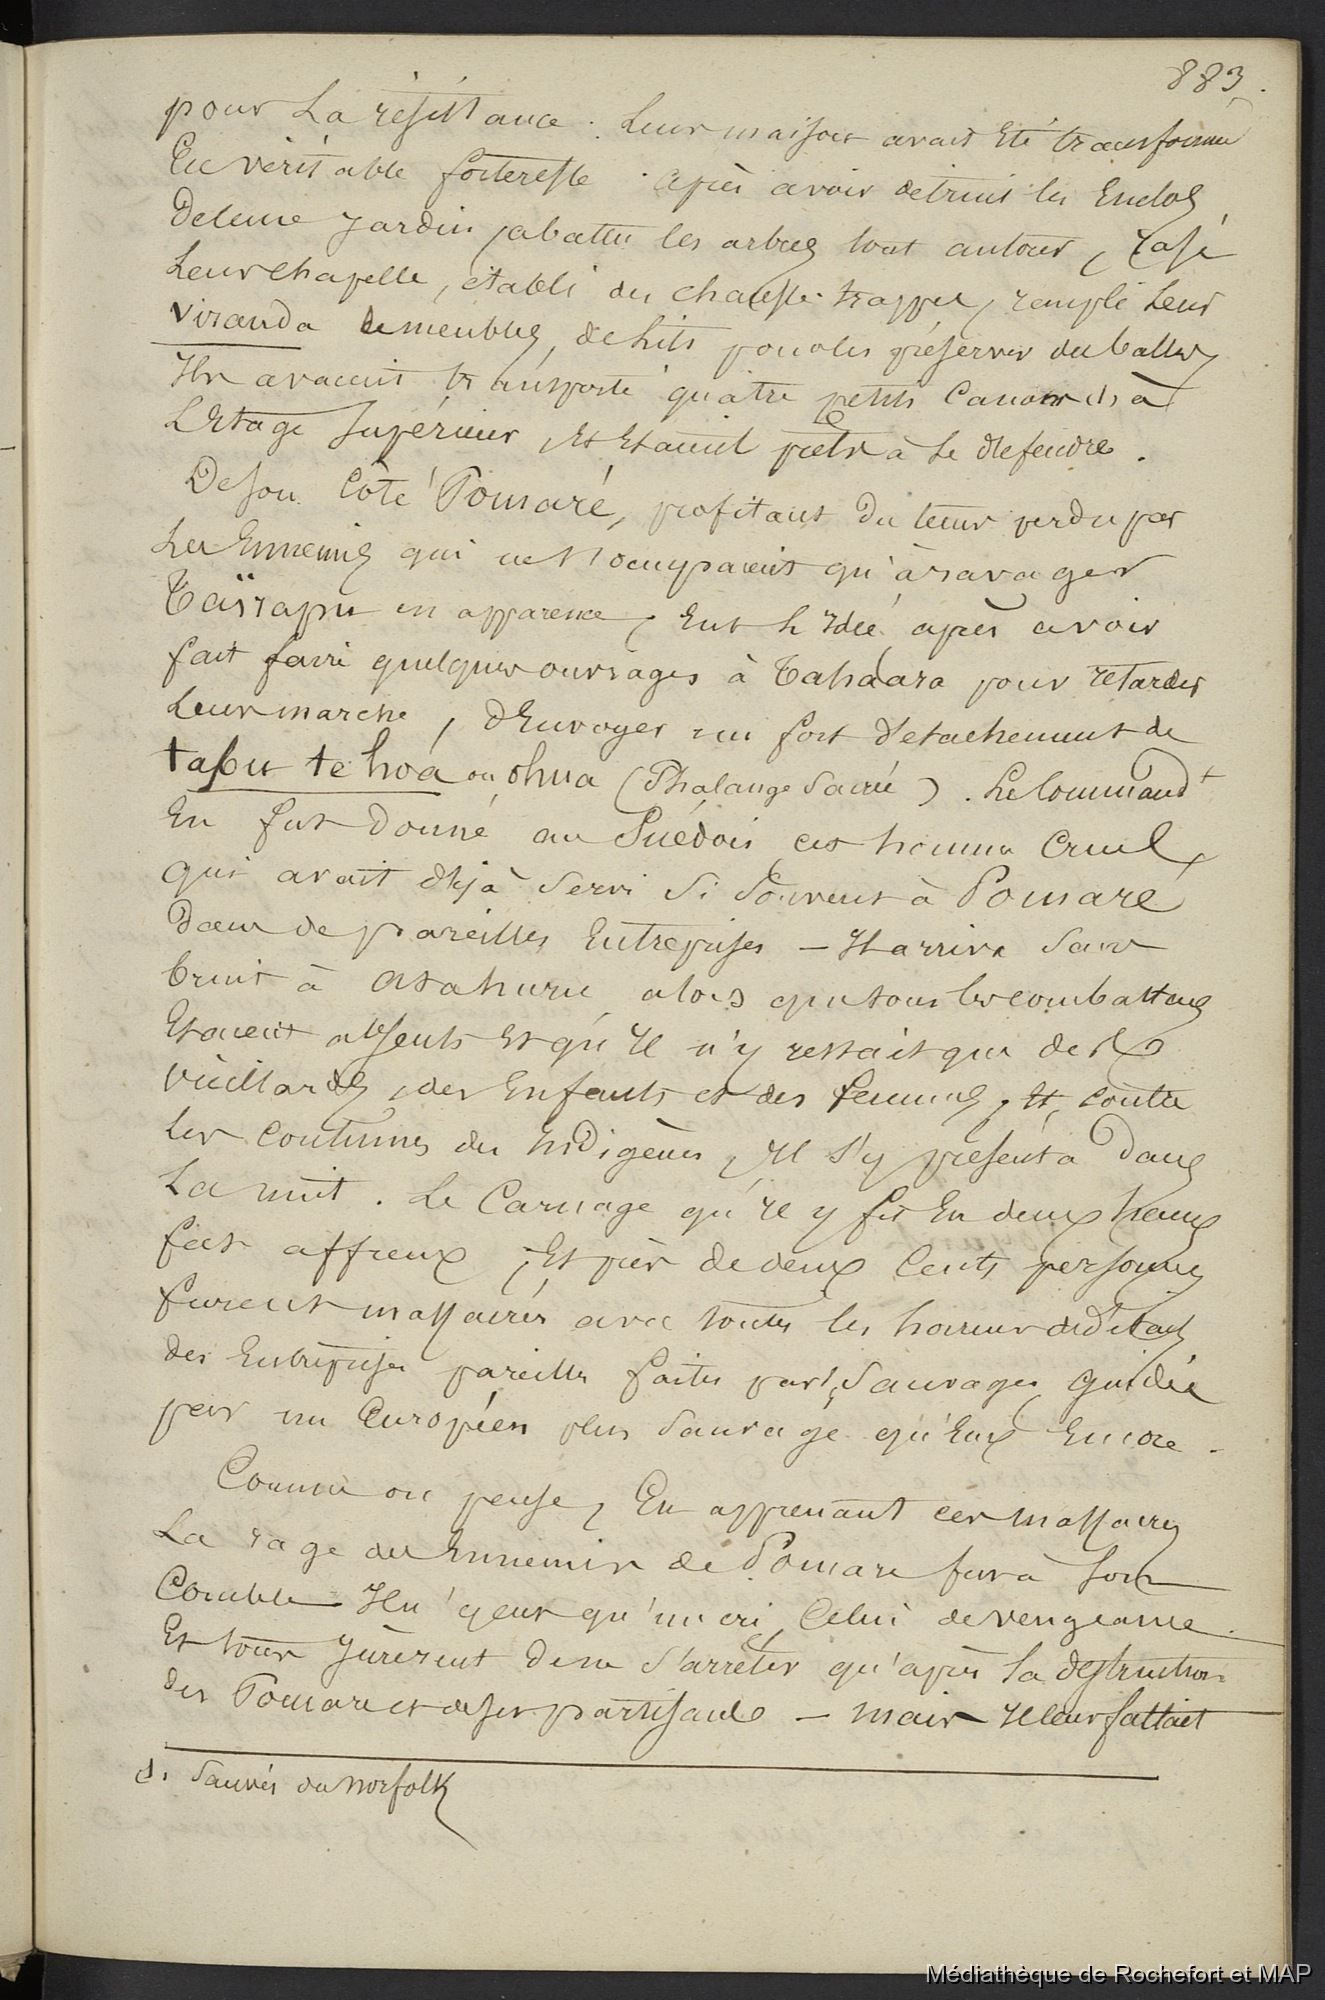 883.
pour La résistance. Leur maison avait Eté transformée
En véritable forteresse. Après avoir détruit les Enclos
De leur Jardin, abattu les arbres tout autour, rasé
Leur Chapelle, établi des chausse-trappes, rempli Leur
Viranda de meubles, de Lits pour les préserver des balles,
Ils avaient transporté quatre petits Canons d. à
L'Etage Supérieur, Et Etaient prêts à se défendre.
De son Côté Pomaré, profitant du tems perdu par
Les Ennemis qui ne s'occupaient qu'à ravager
Taïrapu en apparence, Eut L'Idée, après avoir
fait faire quelques ouvrages à Tahaara pour retarder
Leur marche, d'Envoyer un fort détachement de
tabu te hoa ou ohua (Phalange Sacrée). Le Commandt
En fut Donné au Suédois, cet homme Cruel,
qui avait déjà Servi Si Souvent à Pomaré
Dans de pareilles Entreprises — Il arriva Sans
bruit à Atahuru, alors que tous les combattans
Etaient absents Et qu'Il n'y restait que des
vieillards, des Enfants et des femmes, Et, contre
Les Coutumes des Indigènes, Il s'y présenta Dans
La nuit. Le Carnage qu'Il y fit En deux heures
fut affreux, Et près de deux Cents personnes
furent massacrés avec toutes les horreurs
des Entreprises pareilles faites par Sauvages, guidés
par un Européen plus Sauvage qu'Eux Encore.
Comme on pense, En apprenant ces massacres
La rage des Ennemis de Pomare fut à Son
Comble. Il n'y eut qu'un cri, Celui de vengeance.
Et tous Jurèrent De ne S'arrêter qu'après La destruction
des Pomare et de ses partisans — mais Il leur fallait
d. Sauvés du Norfolk
Médiathèque de Rochefort et MAP